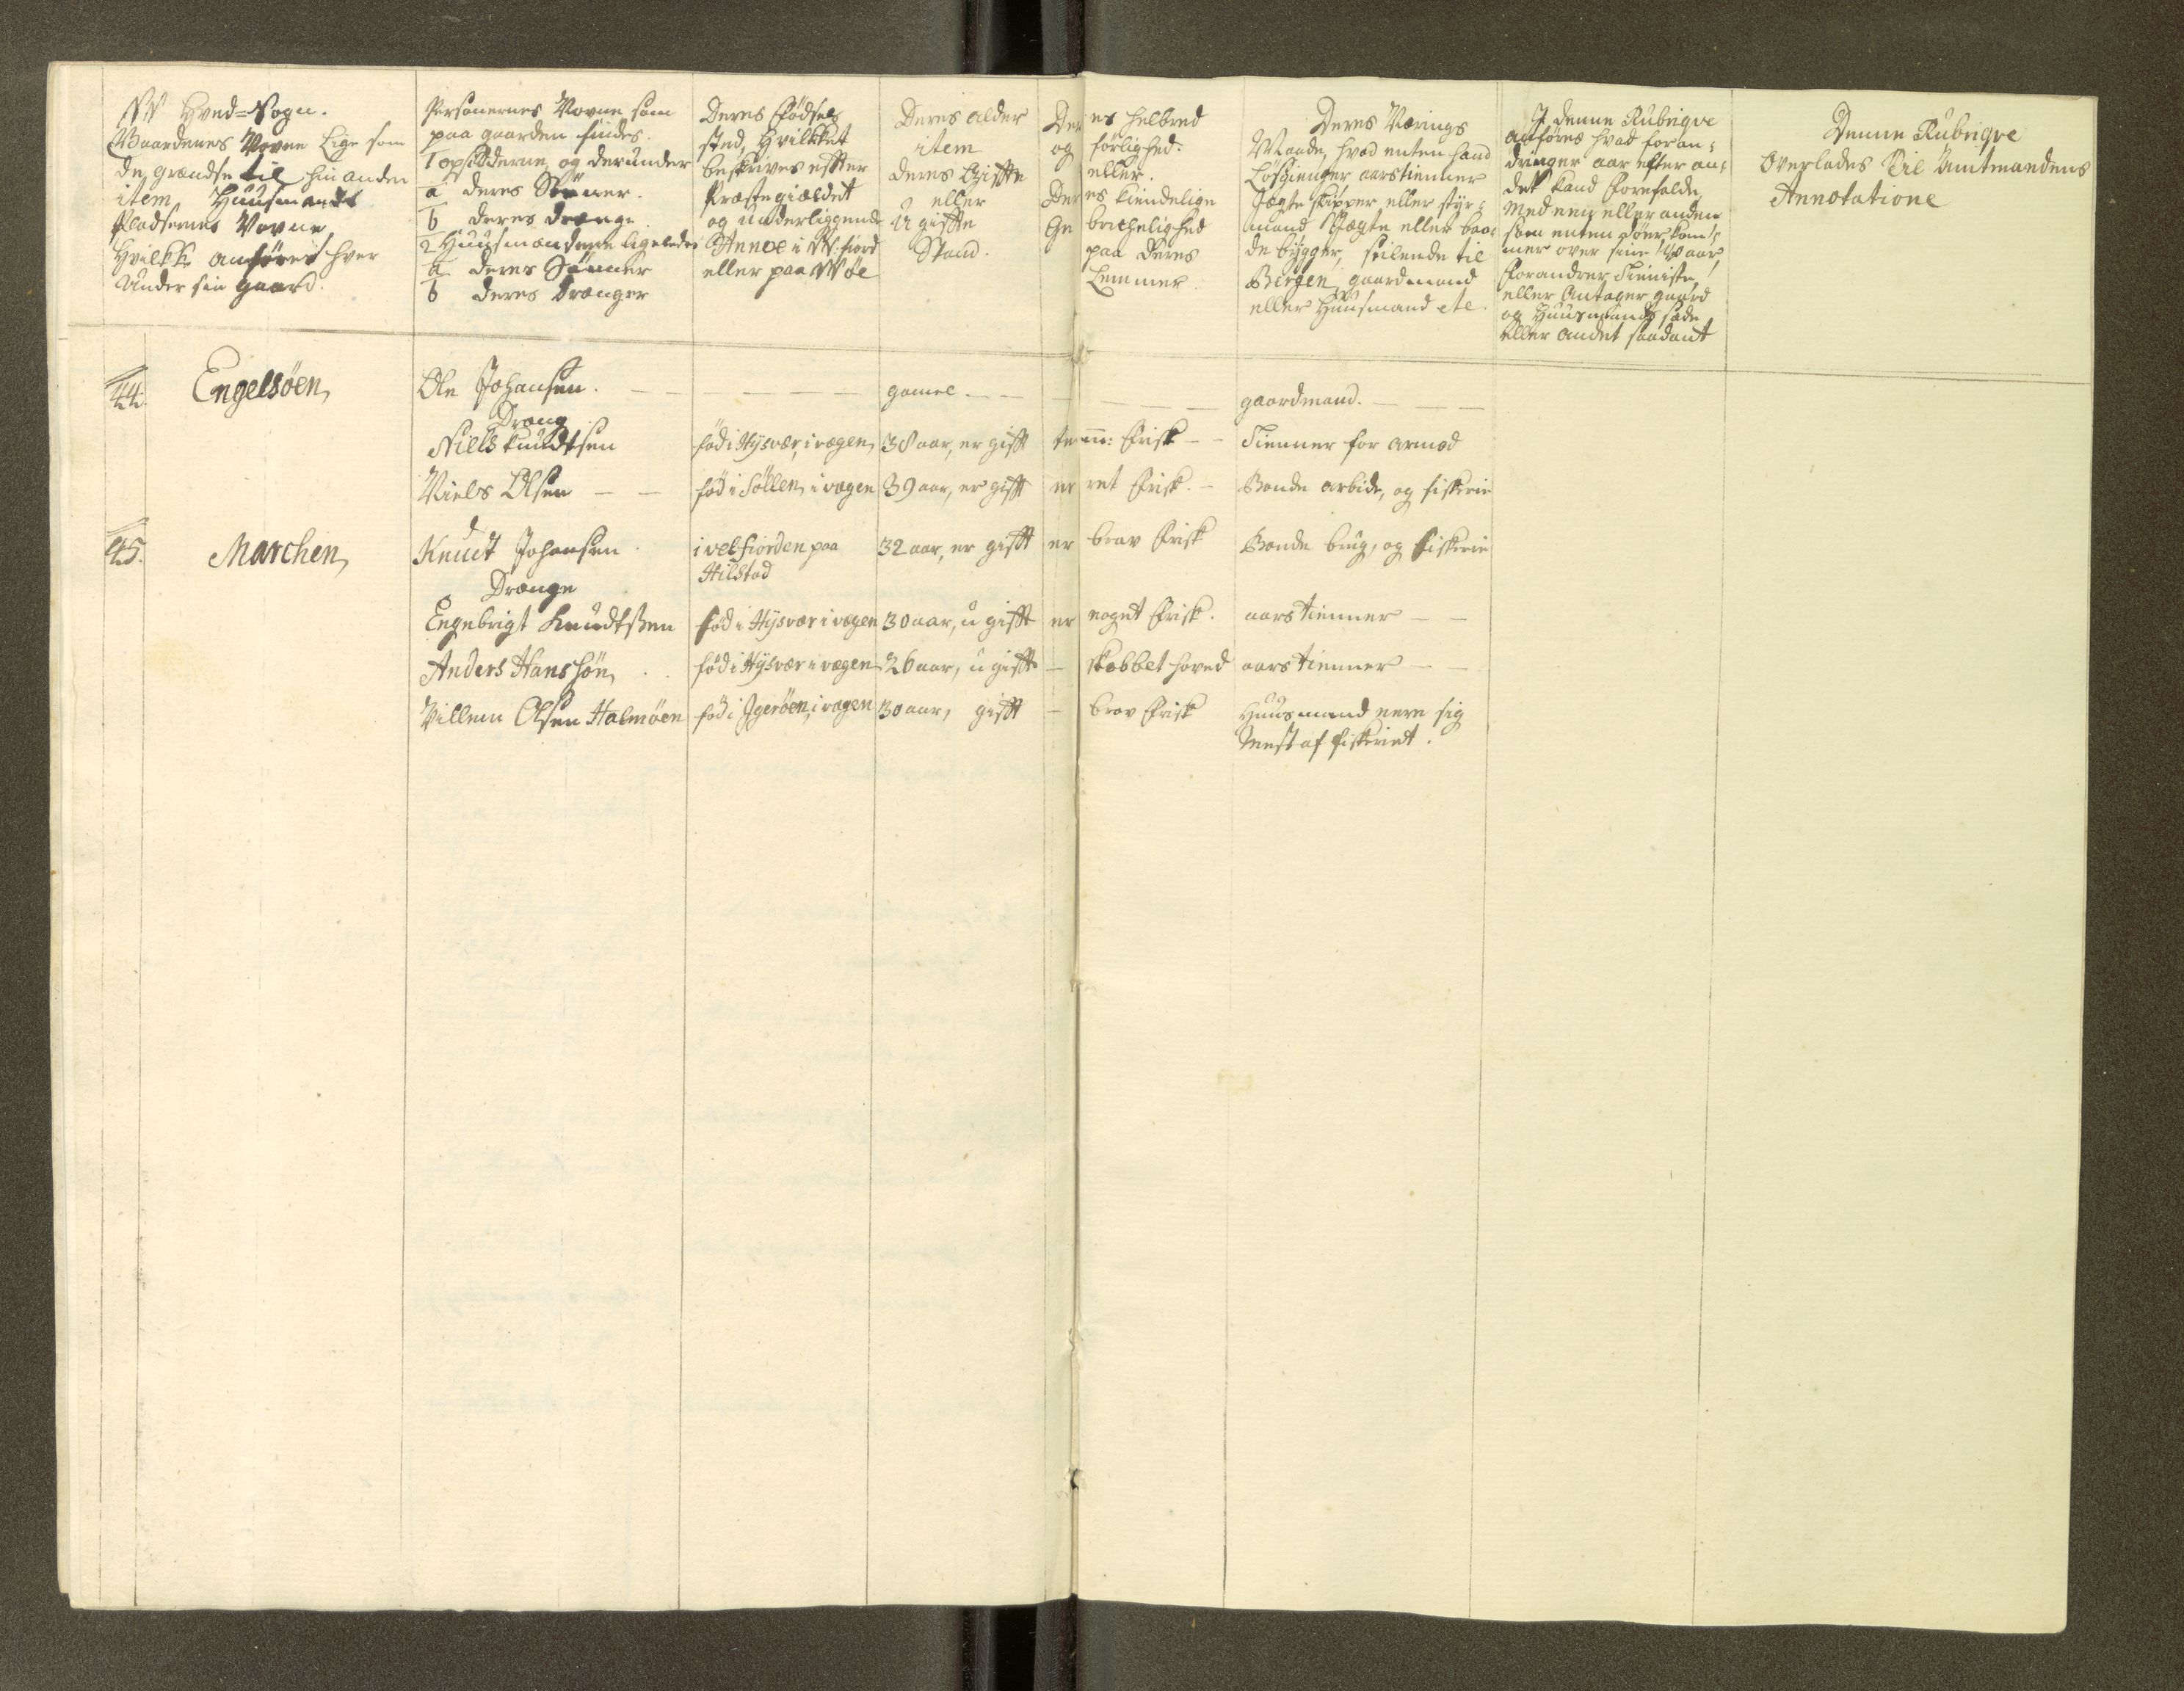 Hved=Sogn.
Gaardenes Navne Lige som
de grændse til hin anden
item Huusmands
Pladsernes Navne
Hvilkke anføres hver
Under sin gaard.
Personernes Navne som
paa gaarden findes.
1 opsidderne og derunder
a deres Sönner.
b deres drenge
2 Huusmændene ligeledes
a deres Sönner
b deres Drenger
Deres Fødsels
sted, Hvilkket
beskrives effter
Præstegiældet
og underliggende
Annex i fiord
eller paa
Deres alder
item
deres Giffte
eller
U giffte
Stand.
Deres Helbred
og förlighed.
eller.
Deres Kiendelige
Gebrechelighed
paa Deres
Lemmer.
Deres Nærings
Maade, hvad enten hand
Løsgienger aarstienner
Jægte skipper eller styr=
mand Jægte eller baa=
de bygger, seilende til
Bergen, gaardmand
eller Huusmand etc
I denne Rubriqve
anføres hvad foran=
dringer aar efter an=
det kand forefalde
med een eller anden
som enten döer, kom=
mer over sine 40 aar
forandrer Tieniste,
eller Antager gaard
og Huusmands sæde
eller andet saadant
Denne Rubriqve
Overlades Til Amtmandens
Annotatione
44. Engelsöen, Ole Johansen. — — — — gamel — — — — — gaardmand. — — —
Dreng
Niels Knudtsen föd i Hysvær, i vegen, 38 aar, er gifft temm: frisk — — Tienner for armod
Niels Olsen — — föd i Söllen, i vægen 39 aar, er gifft er ret frisk. — Bonde arbide, og fiskerie
45. Marchen, Knudt Johansen. i velfiorden paa 32 aar, er gifft er brav frisk Bonde brug, og fiskerie
Hilstad
Drenge
Engebrigt Knudtssen föd i Hysvær i vegen 30 aar, u gifft er noget frisk. aars tienner — —
Anders Hanssön, . . föd i Hysvær i vegen 26 aar, u gifft — skabbet hoved aars tienner — —
Villem Olsen Halmöen föd i Igeröen, i vegen 30 aar, gifft — brav frisk Huusmand nere sig
mest af fiskeriet.